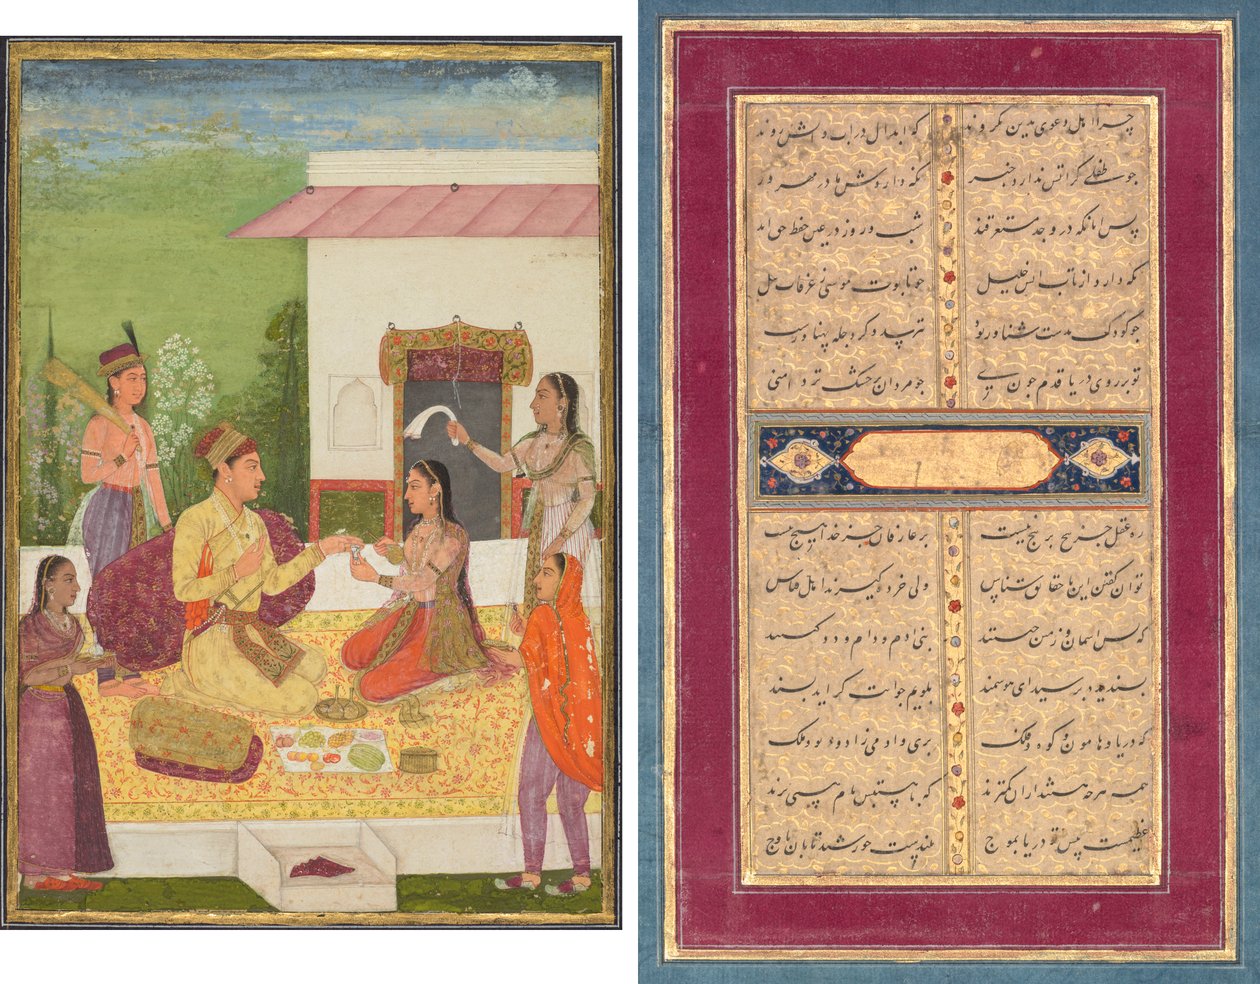 چرا اهل دعوی بدین نگروند که ابدال در آب و آتش روند
چو طفلی کز آتش ندارد خبر نگه داردش مادر مهرور
پس آنانکه در وجد مستغرقند شب و روز در عین حفظ حق اند
نگه دارد از تاب آتش خلیل چو تابوت موسی ز غرقاب نیل
چو کودک بدست شناور نترسد وگر دجله پهناورست
تو بر روی دریا قدم چون زنی چو مردان بر خشک تر دامنی
ره عقل جز پیچ بر پیچ نیست بر عارفان جز خدا هیچ نیست
توان گفتن این با حقایق شناس ولی خرده گیرند اهل قیاس
که پس آسمان و زمین چیستند بنی آدم و دام و دد کیستند
پسندیده پرسیدی ای هوشمند بگویم جوابت گر آید پسند
که دریا و هامون و کوه و فلک پری و آدمی زاد و دیو و ملک
همه هرچه هستند از آن کمترند که با هستیش نام هستی برند
عظیمست پیش تو دریا بموج بلندست خورشید تابان باوج